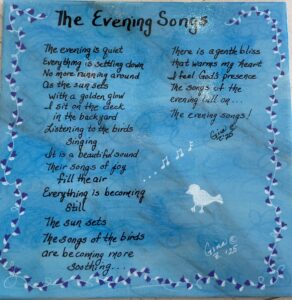 The Evening Songs
The evening is quiet
Everything is settling down
No more running around
As the sun sets
with a golden glow
I sit on the deck
in the backyard
Listening to the birds
Singing
It is a beautiful sound
Their songs of joy
fill the air
Everything is becoming
Still
The sun sets
The songs of the birds
are becoming more
Soothing...
There is a gentle bliss
that warms my heart
I feel God's presence
The songs of the
evening lull on...
The evening songs!
Gina ©
'25
Gina ©
'25